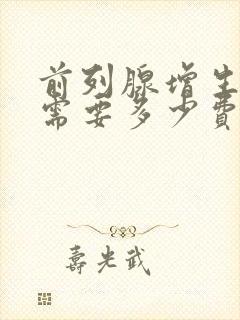 前列腺增生
需要多少費
壽光武